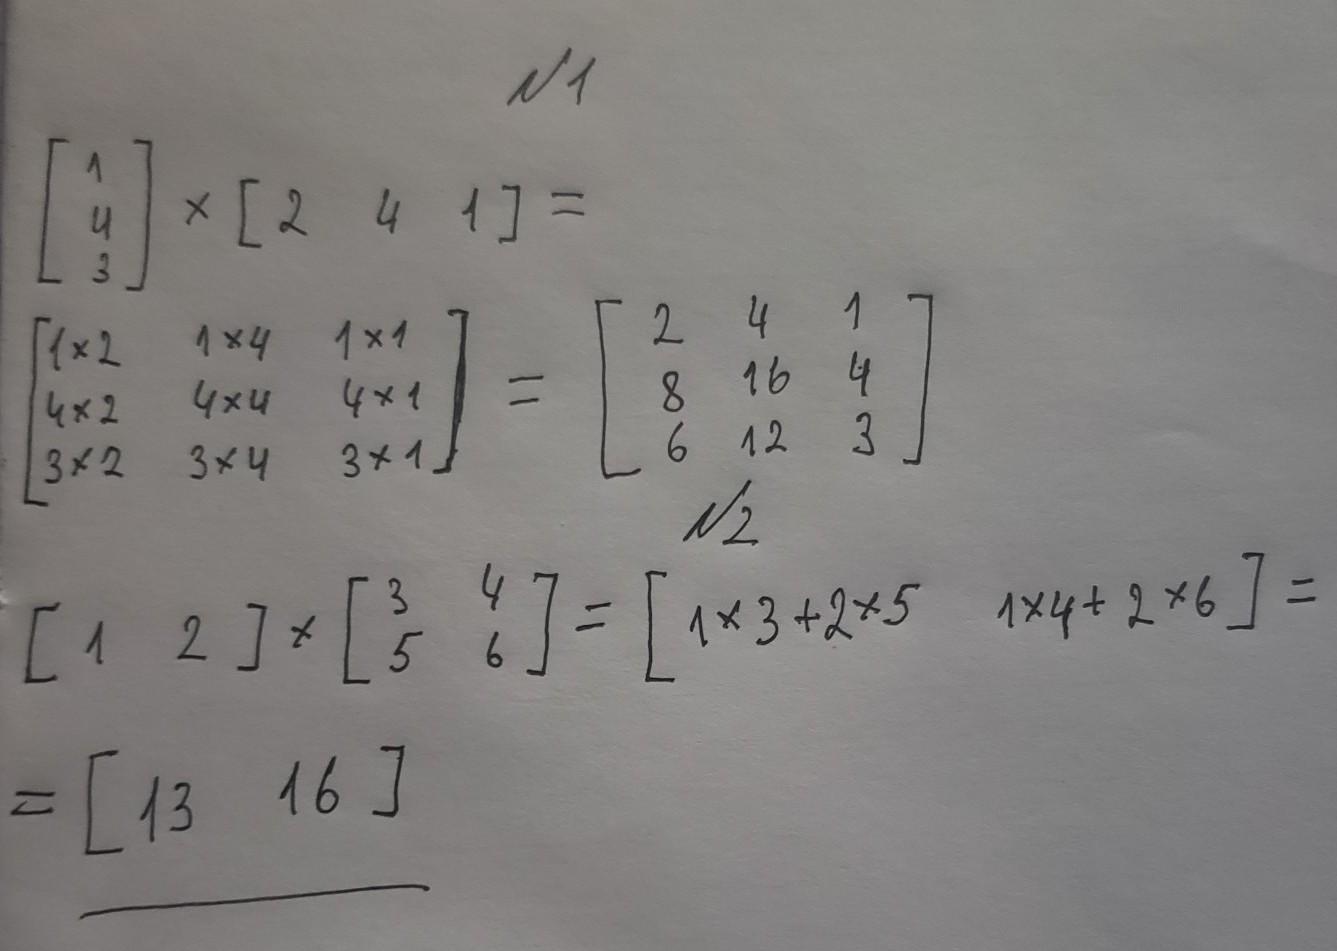 N1
[1 4 3] × [2 4 1] =
[1×2 1×4 1×1
4×2 4×4 4×1
3×2 3×4 3×1] = [2 4 1
8 16 4
6 12 3]
N2
[1 2] × [3 4
5 6] = [1×3+2×5 1×4+2×6] =
= [13 16]